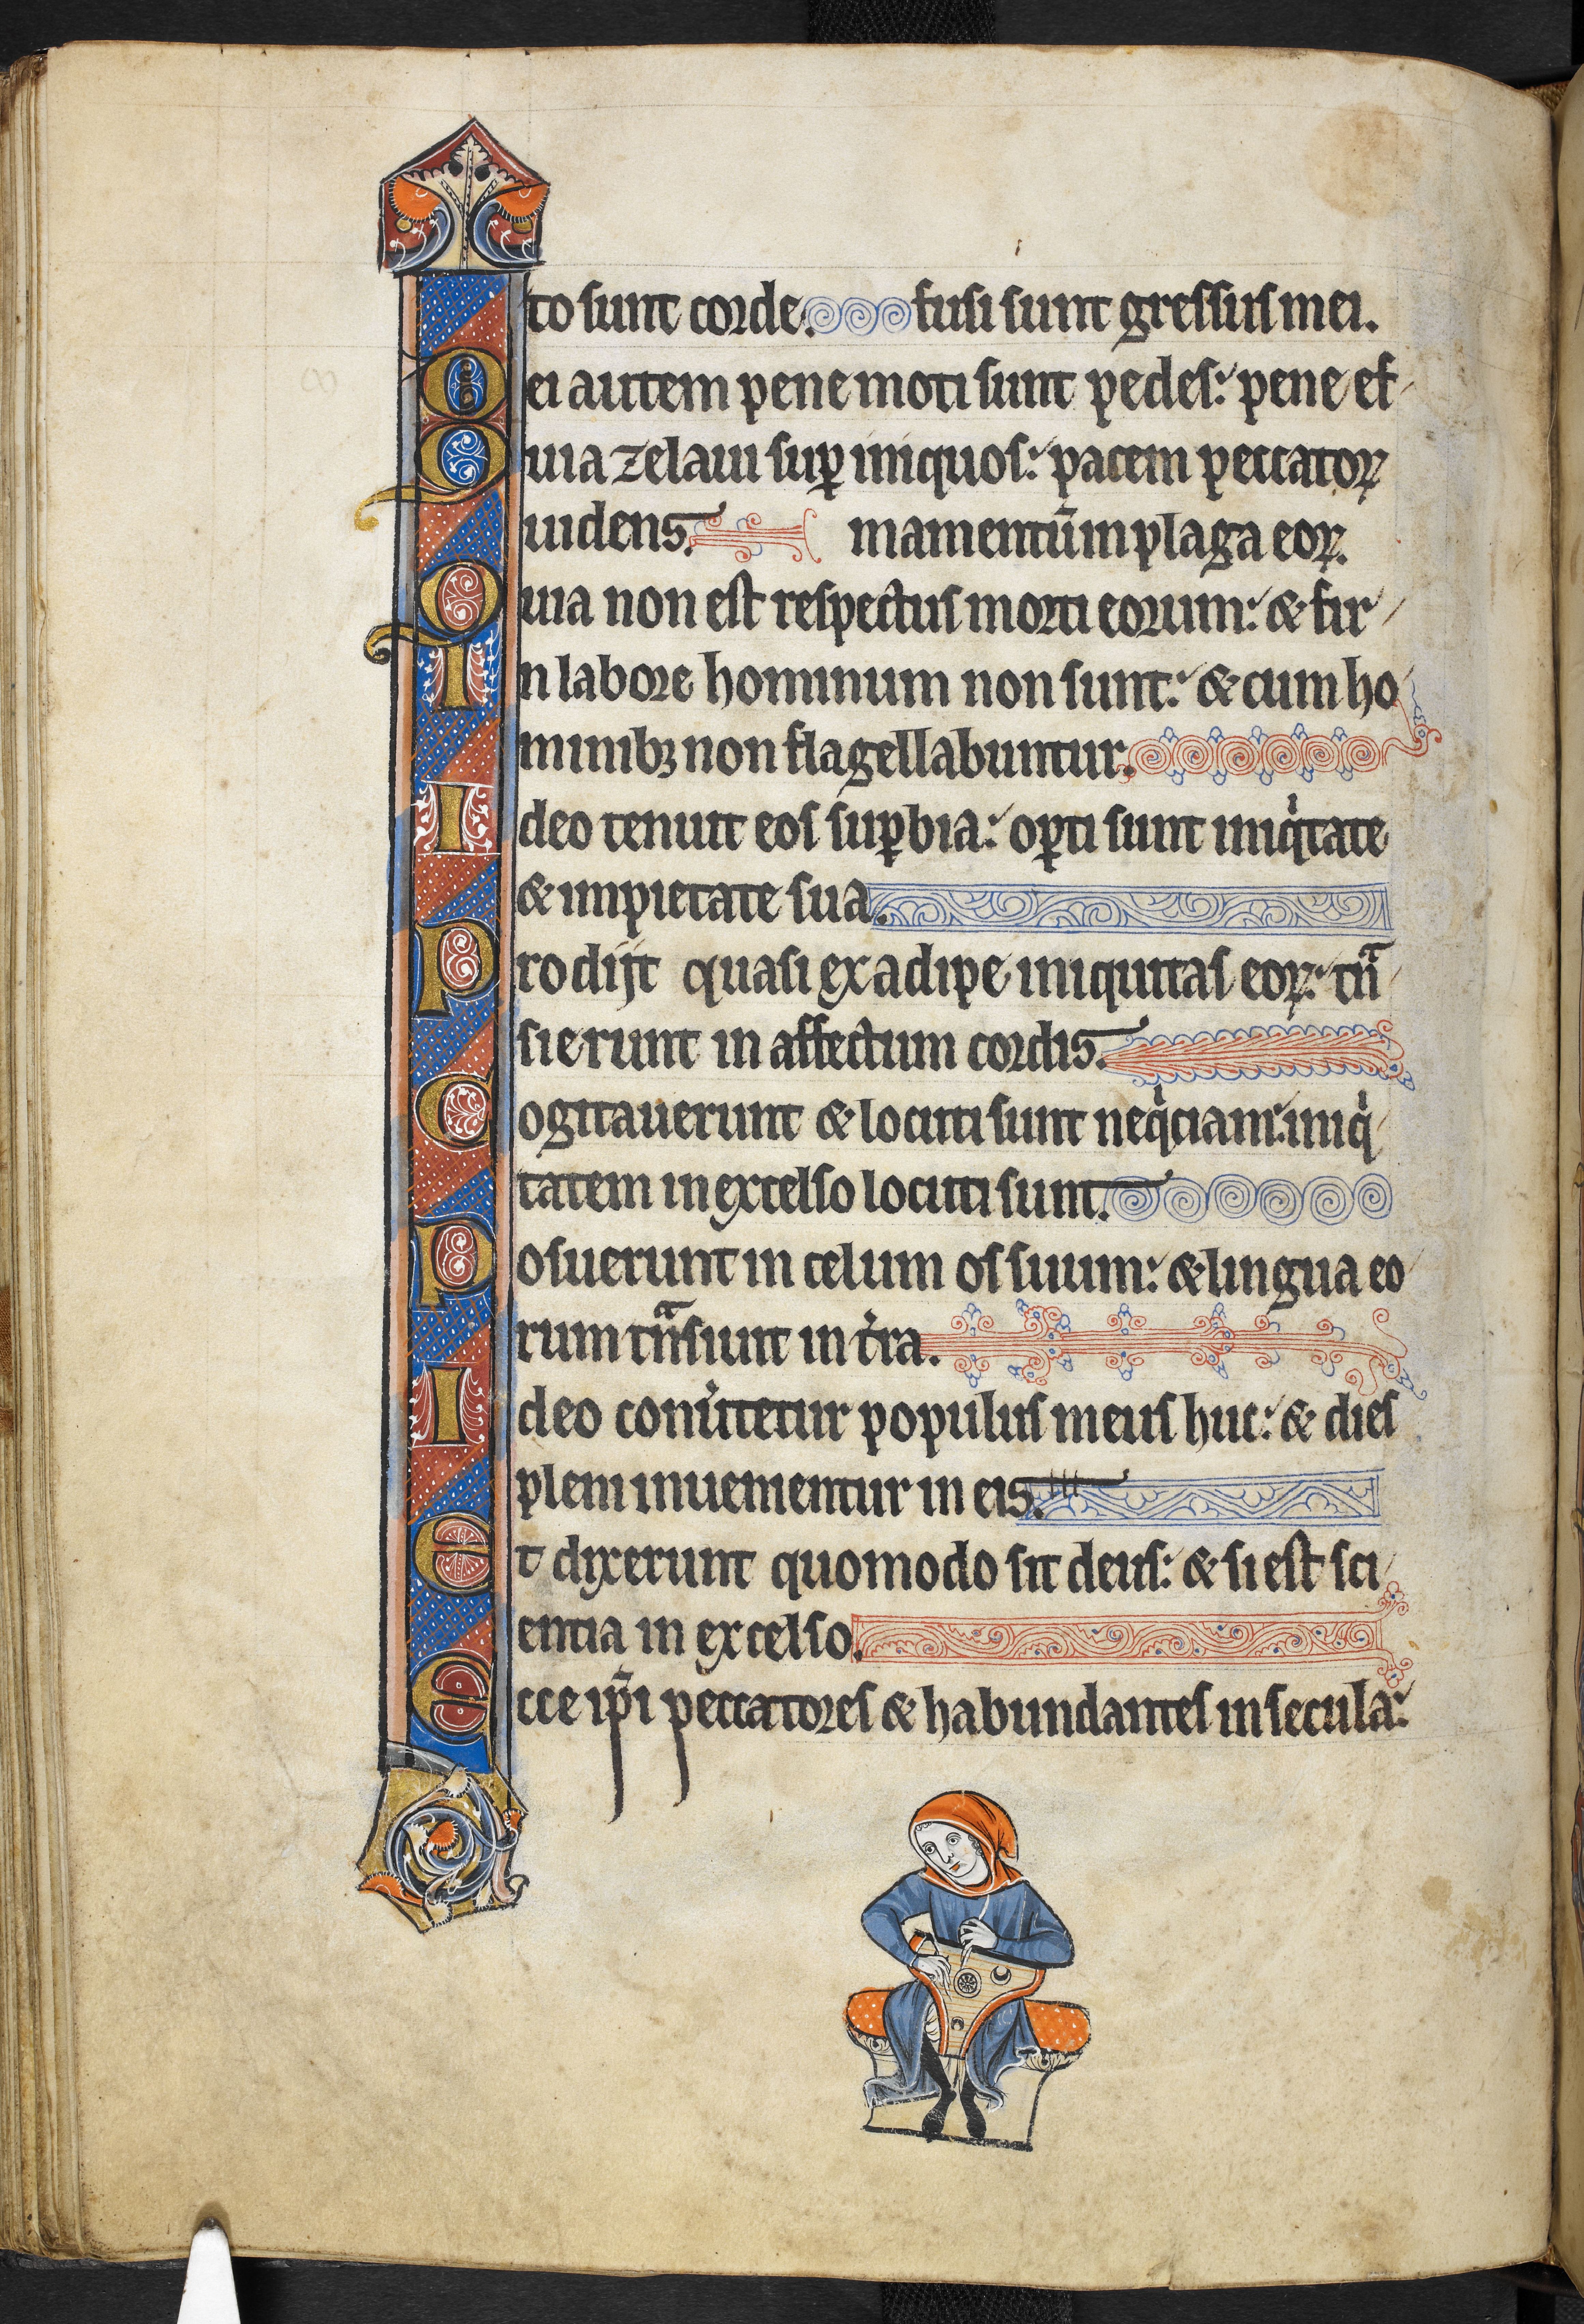 to sunt corde. fusi sunt gressus mei.
Mei autem pene moti sunt pedes: pene ef
Quia zelaui suꝑ iniquos: pacem peccatoꝝ
uidens. mamentū in plaga eoꝝ.
Quia non est respectus morti eorum: & fir
In labore hominum non sunt: & cum ho
minibꝫ non flagellabuntur.
Ideo tenuit eos suꝑbia: oꝑti sunt iniqͥtate
& impietate sua.
Prodijt quasi ex adipe iniquitas eoꝝ: tͣn
sierunt in affectum cordis.
Cogitauerunt & locuti sunt neqͥciam: iniqͥ
tatem in excelso locuti sunt.
Posuerunt in celum os suum: & lingua eo
rum tͣnsiuit in t̾ra.
Ideo conu̾tetur populus meus huc: & dies
pleni inuenientur in eis.
Et dixerunt quomodo sit deus: & si est sci
entia in excelso.
Ecce ip̄i peccatores & habundantes in secula: